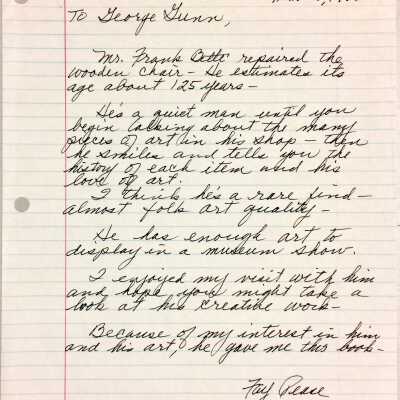 To George Gunn,
Mr. Frank repaired the
wooden chair - He estimates its
age about 125 years -
He's a quiet man until you
begin talking about the many
pieces of art in his shop - then
he smiles and tells you the
history of each item and his
love of art.
I think he's a rare find -
almost folk art quality -
He has enough art to
display in a museum show.
I enjoyed my visit with him
and hope you might take a
look at his creative work -
Because of my interest in him
and his art, he gave me this book -
Fay Pease